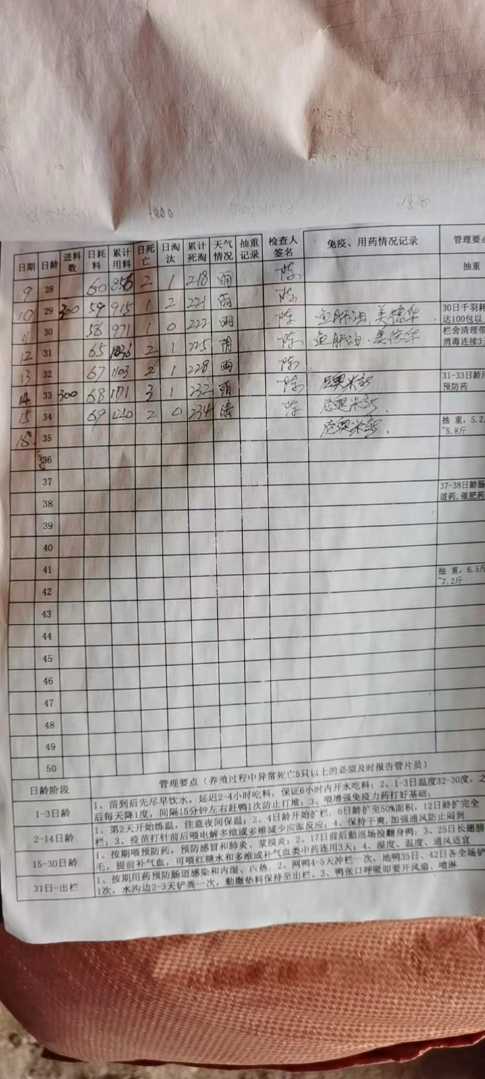 日期 日龄 进料数 日耗料 累计用料 日死亡 日淘汰 累计死淘 天气情况 抽重记录 检查人签名 免疫、用药情况记录 管理要
抽重
9 28 60 856 2 1 218 雨 陈
10 29 300 59 915 1 2 221 雨 陈
30日千羽耗
达100包以
11 30 56 971 1 0 222 雨 陈 鱼肝油
栏舍清理带
消毒连接3
12 31 65 1036 2 1 225 阴 陈 鱼肝油
13 32 67 1103 2 1 228 雨 陈
31-33日龄
预防药
14 33 300 68 1171 3 1 232 阴 陈
15 34 69 1240 2 0 234 陈
抽重:5.2
~5.8斤
35
36
37
37-38日龄肠
道药,催肥药
38
39
40
41
抽重:6.5
~7.2斤
42
43
44
45
46
47
48
49
50
日龄阶段 管理要点(养殖过程中异常死亡5只以上的必须及时报告管片员)
1-3日龄 1、苗到后先尽早饮水,延迟2-4小时吃料,保证6小时内开水吃料;2、1-3日温度32-30度,
后每天降1度,间隔15分钟左右赶鸭1次防止打堆;3、喂增强免疫力药打好基础;
2-14日龄 1、第2天开始炼温,注意夜间保温;2、4日龄开始扩栏,6日龄扩至50%面积,12日龄扩完全
栏;3、疫苗打针前后喂电解多维或多维减少应激反应;4、保持干爽,加强通风防止闹到
15-30日龄 1、按期喂预防药,预防感冒和肺炎、浆膜炎;2、17日前后勤巡场捡翻身鸭;3、25日长翅膀
毛,提前补气血,可喂红糖水和多维或补气血类中药连用3天;4、湿度、温度、通风适宜
31日-出栏 1、按期用药预防肠道感染和内湿、内热;2、网鸭4-5天冲栏一次,地鸭35日、42日各全场铲
1次,水沟边2-3天铲粪一次,勤撒垫料保持至出栏;3、鸭张口呼吸即要开风扇、喷淋